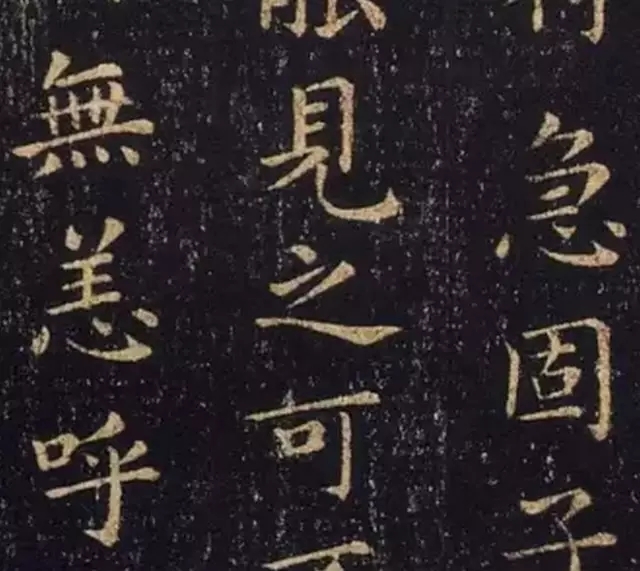 急固子
見之可
無恙呼